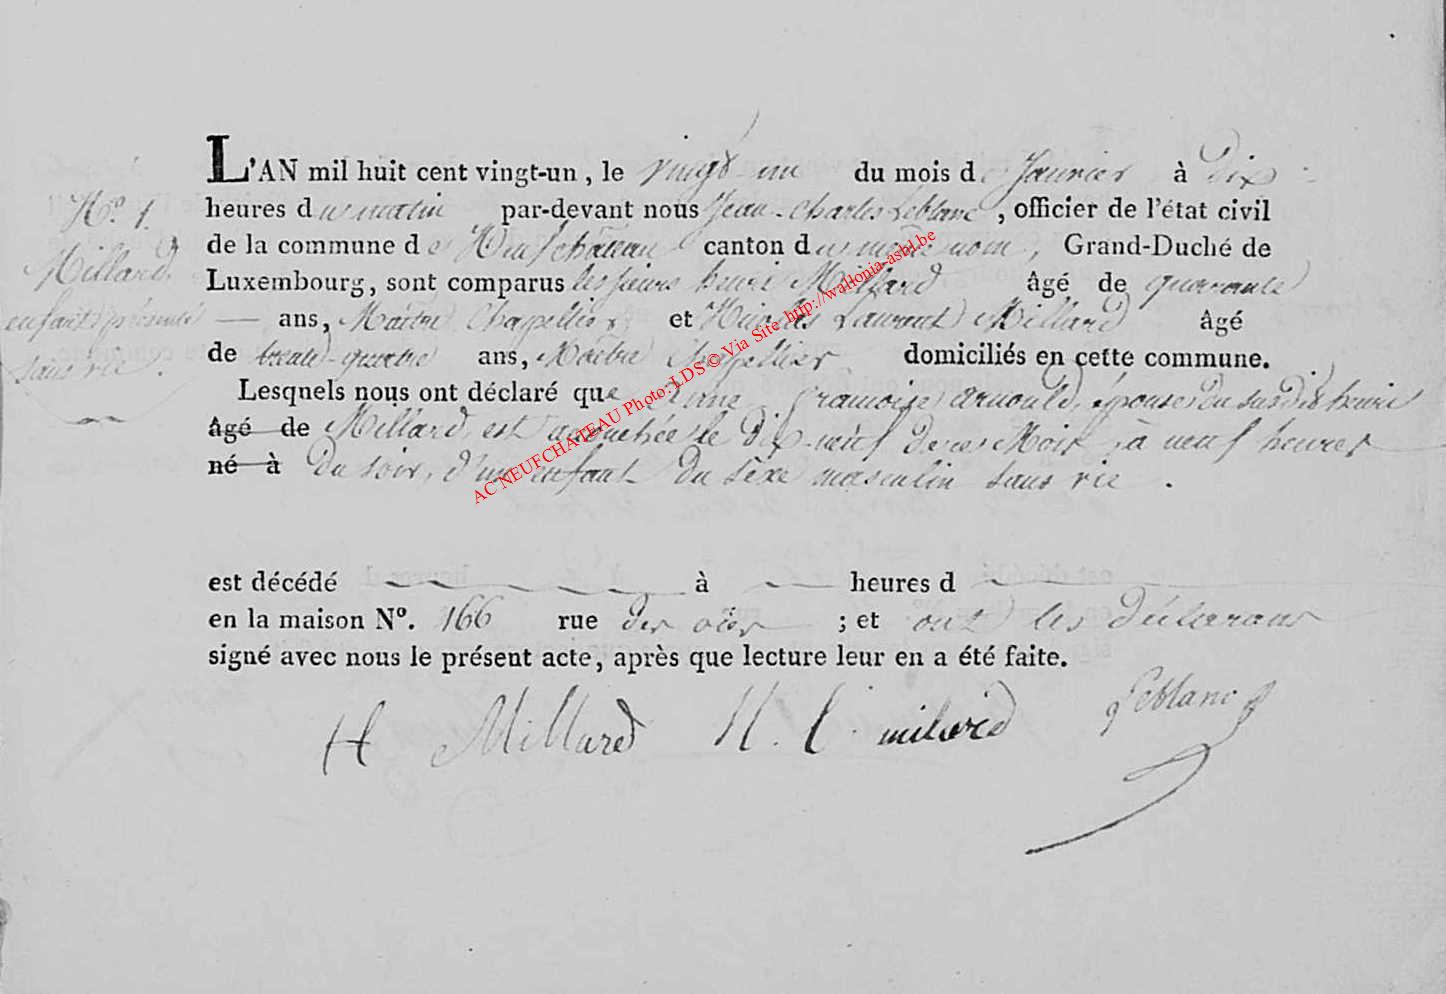 L'AN mil huit cent vingt-un, le vingt un du mois de Janvier à Dix
heures du matin par-devant nous Jean-Charles Leblanc, officier de l'état civil
de la commune de Neufchâteau canton du même nom, Grand-Duché de
Luxembourg, sont comparus les sieurs henri Millard âgé de quarante
— ans, Maître Chapellier, et Nicolas Laurent Millard âgé
de trente-quatre ans, Maître Chapellier domiciliés en cette commune.
Lesquels nous ont déclaré que Anne françoise arnould, épouse du susdit henri
âgé de Millard, est accouchée le dix-neuf de ce Mois, à neuf heures
né à du soir, d'un enfant du sèxe masculin sans vie.
est décédé — à — heures d —
en la maison N°. 166 rue des ; et ont les déclarans
signé avec nous le présent acte, après que lecture leur en a été faite.
H Millard N. L. milard Leblanc
N° 1.
Millard
enfant
sans vie.
AC NEUFCHATEAU Photo: LDS © Via Site http://wallonia-asbl.be